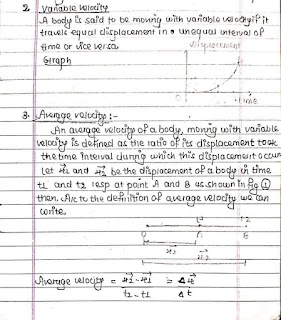 2. Variable velocity
A body is said to be moving with variable velocity if it
travels equal displacement in unequal interval of
time or vice versa
Graph
Displacement
O
time
3. Average velocity :-
An average velocity of a body, moving with variable
velocity is defined as the ratio of its displacement to
the time interval during which this displacement occurs
Let x1 and x2 be the displacement of a body in time
t1 and t2 resp at point A and B as shown in fig ①
then. A/c to the definition of average velocity we can
write.
t1 t2
O A B
x1
x2
Average velocity = x2 - x1 = Δx
t2 - t1 Δt